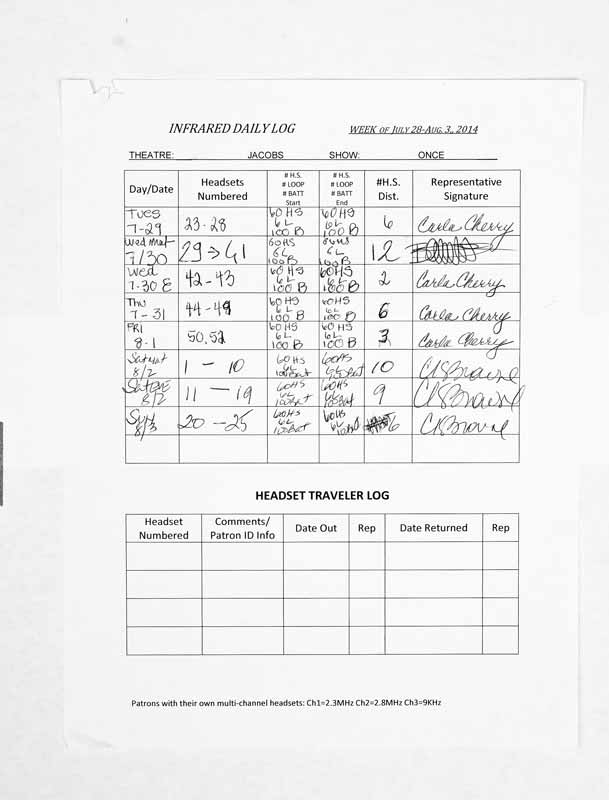 INFRARED DAILY LOG WEEK OF JULY 28-AUG. 3, 2014
THEATRE: JACOBS SHOW: ONCE
Day/Date Headsets Numbered # H.S. # LOOP # BATT Start # H.S. # LOOP # BATT End #H.S. Dist. Representative Signature
Tues 7-29 23-28 60 HS 6L 100 B 60 HS 6L 100 B 6 Carla Cherry
Wed mat 7/30 29→41 60HS 6L 100B 60HS 6L 100 B 12
Wed 7-30 E 42-43 60 HS 6L 100 B 60HS 6L 100 B 2 Carla Cherry
Thu 7-31 44-49 60 HS 6L 100 B 60HS 6L 100 B 6 Carla Cherry
FRI 8-1 50.52 60 HS 6L 100 B 60 HS 6L 100 B 3 Carla Cherry
Satmat 8/2 1 - 10 60HS 6L 100Bat 60HS 6L 100Bat 10 CKBrowne
SatEve 8/2 11 - 19 60HS 6L 100Bat 60HS 6L 100Bat 9 CKBrowne
Sun 8/3 20 - 25 60HS 6L 100Bat 60HS 6L 6 CKBrowne
HEADSET TRAVELER LOG
Headset Numbered Comments/ Patron ID Info Date Out Rep Date Returned Rep
Patrons with their own multi-channel headsets: Ch1=2.3MHz Ch2=2.8MHz Ch3=9KHz